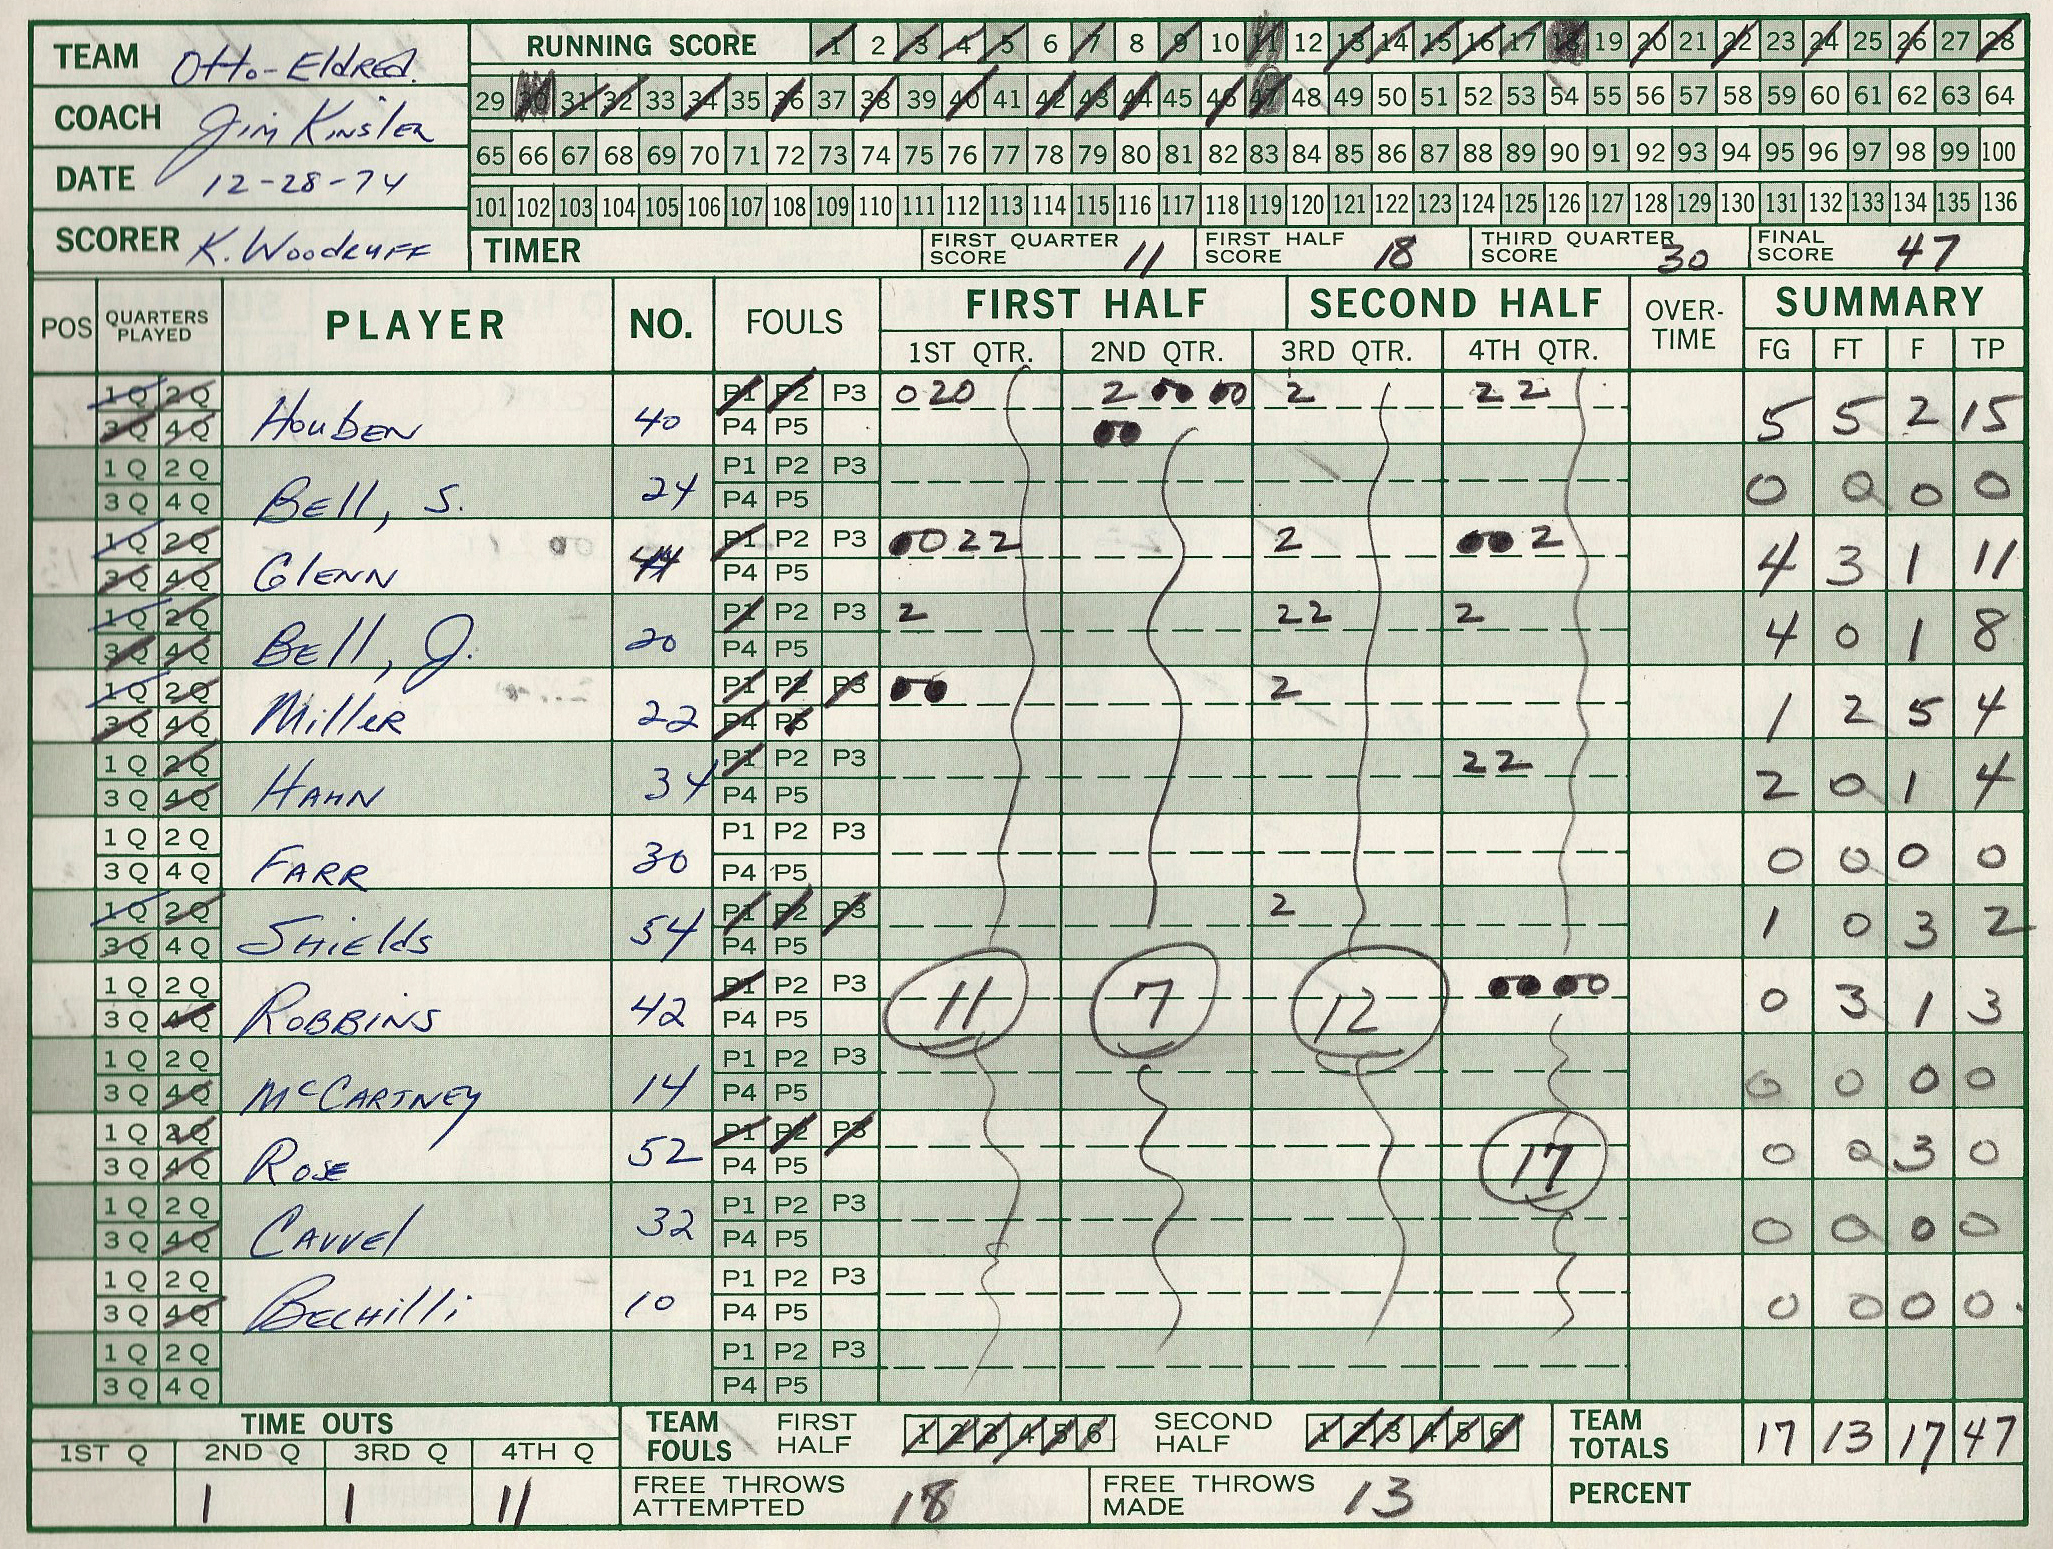 TEAM Otto-Eldred
COACH Jim Kinsler
DATE 12-28-74
SCORER K. Woodruff
RUNNING SCORE 1 2 3 4 5 6 7 8 9 10 11 12 13 14 15 16 17 18 19 20 21 22 23 24 25 26 27 28
29 30 31 32 33 34 35 36 37 38 39 40 41 42 43 44 45 46 47 48 49 50 51 52 53 54 55 56 57 58 59 60 61 62 63 64
65 66 67 68 69 70 71 72 73 74 75 76 77 78 79 80 81 82 83 84 85 86 87 88 89 90 91 92 93 94 95 96 97 98 99 100
101 102 103 104 105 106 107 108 109 110 111 112 113 114 115 116 117 118 119 120 121 122 123 124 125 126 127 128 129 130 131 132 133 134 135 136
TIMER FIRST QUARTER SCORE 11 FIRST HALF SCORE 18 THIRD QUARTER SCORE 30 FINAL SCORE 47
POS QUARTERS PLAYED PLAYER NO. FOULS FIRST HALF SECOND HALF OVER-TIME SUMMARY
1ST QTR. 2ND QTR. 3RD QTR. 4TH QTR. FG FT F TP
1Q 2Q Houben 40 P1 P2 P3 020 2 00 00 2 22 5 5 2 15
3Q 4Q P4 P5 00
1Q 2Q Bell, S. 24 P1 P2 P3 0 0 0 0
3Q 4Q P4 P5
1Q 2Q Glenn 44 P1 P2 P3 0022 2 00 2 4 3 1 11
3Q 4Q P4 P5
1Q 2Q Bell, J. 20 P1 P2 P3 2 22 2 4 0 1 8
3Q 4Q P4 P5
1Q 2Q Miller 22 P1 P2 P3 00 2 1 2 5 4
3Q 4Q P4 P5
1Q 2Q Hahn 34 P1 P2 P3 22 2 0 1 4
3Q 4Q P4 P5
1Q 2Q Farr 30 P1 P2 P3 0 0 0 0
3Q 4Q P4 P5
1Q 2Q Shields 54 P1 P2 P3 2 1 0 3 2
3Q 4Q P4 P5
1Q 2Q Robbins 42 P1 P2 P3 11 7 12 00 00 0 3 1 3
3Q 4Q P4 P5
1Q 2Q McCartney 14 P1 P2 P3 0 0 0 0
3Q 4Q P4 P5
1Q 2Q Rose 52 P1 P2 P3 17 0 0 3 0
3Q 4Q P4 P5
1Q 2Q Cavvel 32 P1 P2 P3 0 0 0 0
3Q 4Q P4 P5
1Q 2Q Bechilli 10 P1 P2 P3 0 0 0 0
3Q 4Q P4 P5
1Q 2Q P1 P2 P3
3Q 4Q P4 P5
TIME OUTS TEAM FOULS FIRST HALF 1 2 3 4 5 6 SECOND HALF 1 2 3 4 5 6 TEAM TOTALS 17 13 17 47
1ST Q 2ND Q 3RD Q 4TH Q
1 1 11 FREE THROWS ATTEMPTED 18 FREE THROWS MADE 13 PERCENT